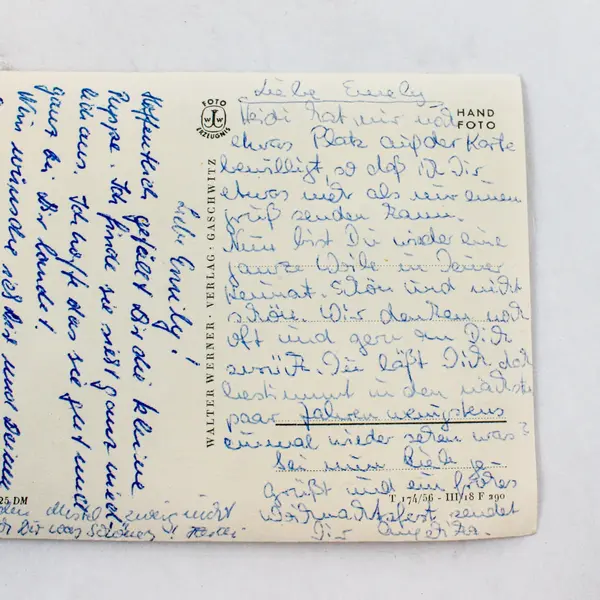 Liebe Emely,
Heidi hat mir noch
etwas Platz auf der Karte
bewilligt, so daß ich Dir
etwas mehr als nur einen
Gruß senden kann.
Nun bist Du wieder eine
ganze Weile in Deiner
Heimat. Schön und nicht
schön. Wir denken noch
oft und gern an Dich
zurück. Du läßt Dich doch
bestimmt in den nächsten
paar Jahren wenigstens
einmal wieder sehen was?
Sei nun lieb ge-
grüßt und ein frohes
Weihnachtsfest sendet
Dir
HAND
FOTO
FOTO
ERZEUGNIS
WALTER WERNER · VERLAG · GASCHWITZ
T 174/56 - III/18 F 290
25 DM
Liebe Emily!
Hoffentlich gefällt Dir die kleine
Puppe. Ich finde sie sieht ganz nied-
lich aus. Ich hoffe das sie gut und
ganz bei Dir landet!
Wir wünsche ich Dir und Deinen
zweig nicht
Dir was Schönes! Heidi